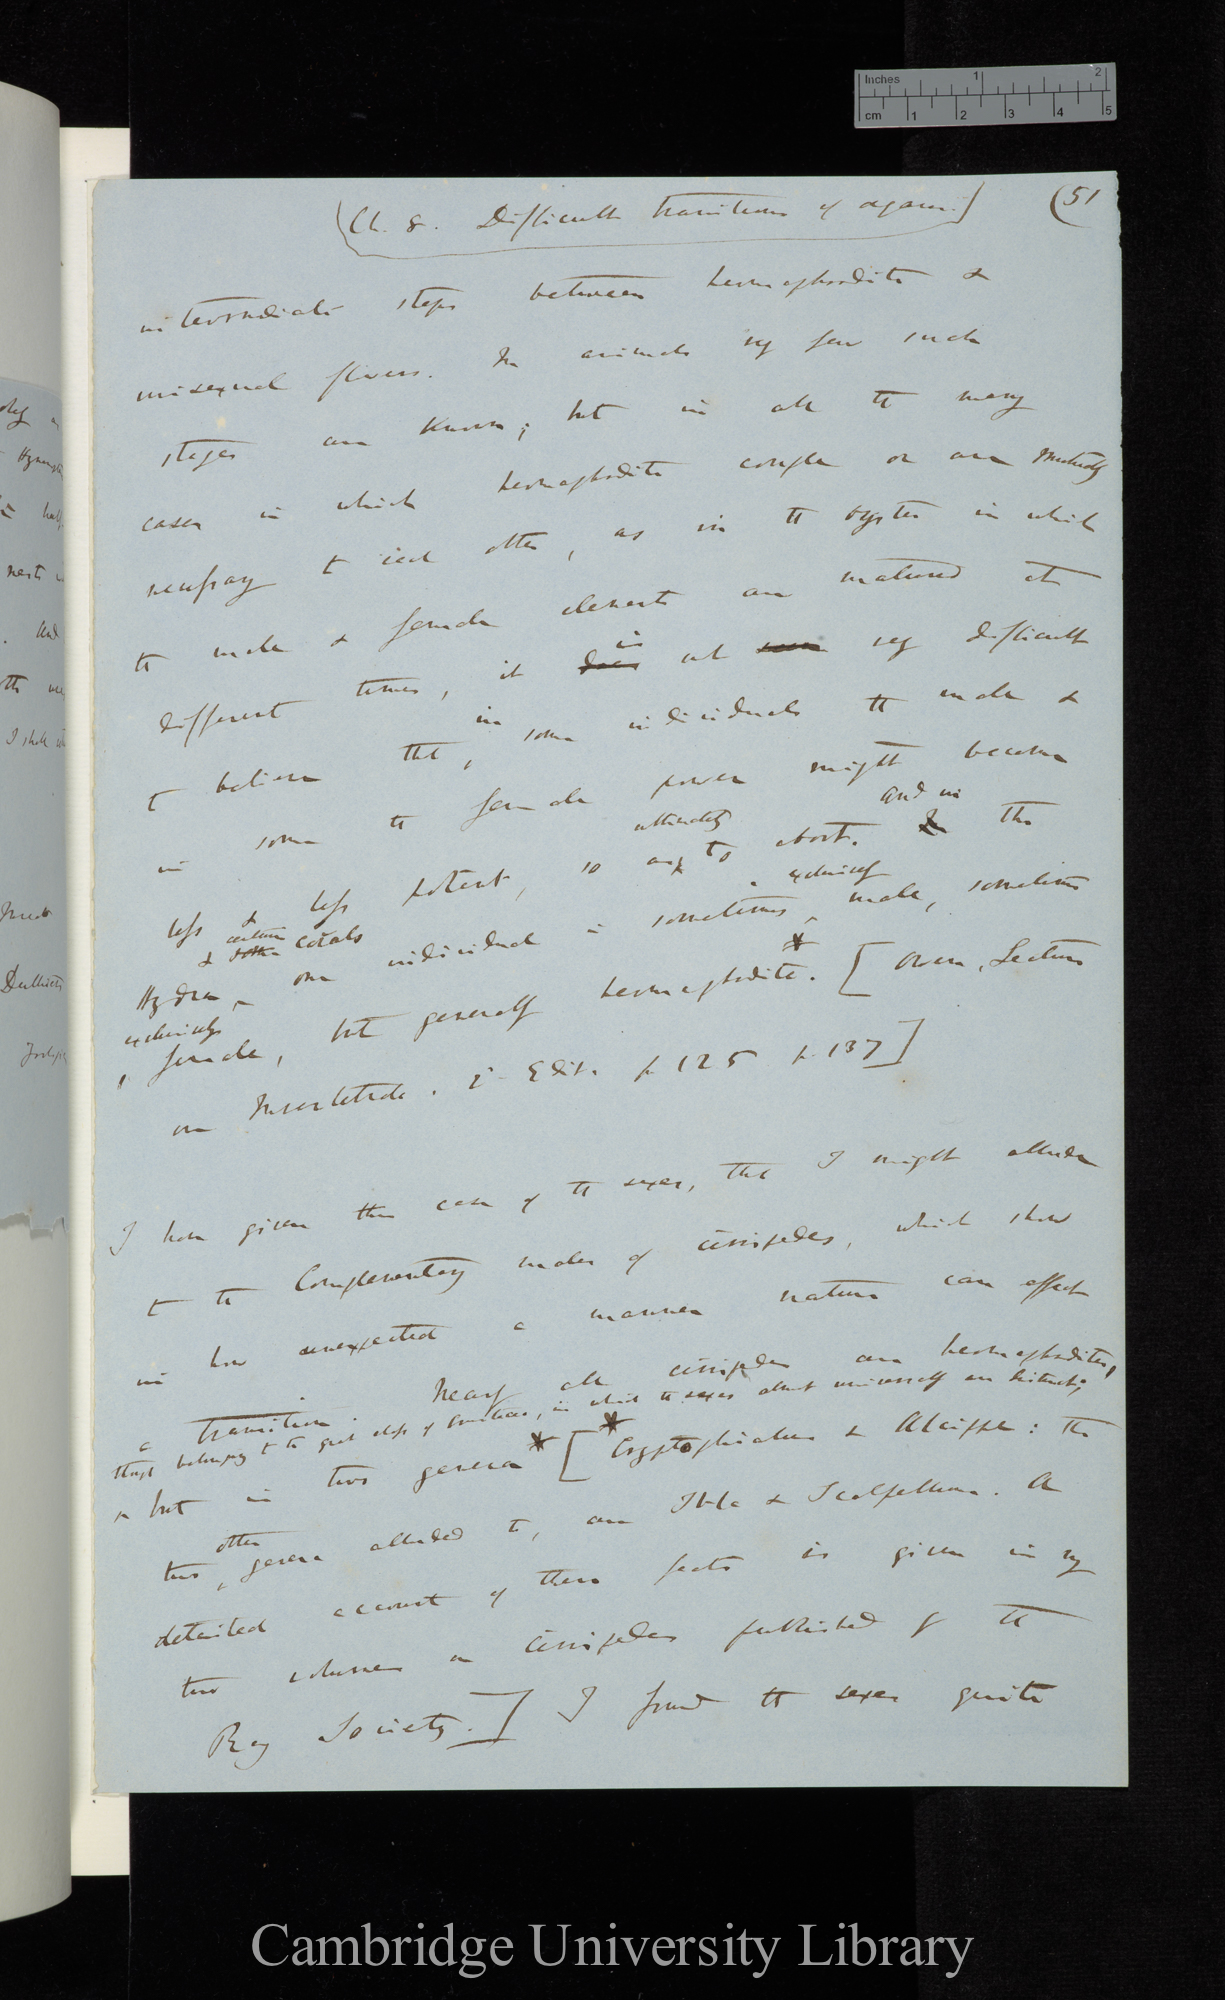 Inches 1 2
cm 1 2 3 4 5
(Ch. 8. Difficult transitions of organs.)
(51
intermediate steps between hermaphrodite &
unisexual flowers. In animals very few such
stages are known; but in all the many
cases in which hermaphrodites couple or are mutually
necessary to each other, as in the oyster in which
the male & female elements are matured at
different times, it does is not seem very difficult
to believe that, in some individuals the male &
in some the female power might become
less & less potent, so as ultimately to abort. In and in the
Hydra, & some certain corals one individual is sometimes exclusively male, sometimes
exclusively female, but generally hermaphrodite.* [Owen, Lectures
on Invertebrata. 2d Edit. p 125 p. 137]
I have given this case of the sexes, that I might allude
to the Complementary males of cirripedes, which show
in how unexpected a manner nature can effect
a transition. Nearly all cirripedes are hermaphrodites,
though belonging to the great class of Crustacea, in which the sexes almost universally are distinct;
but in two genera* [* Cryptophialus & Alcippe: the
two other genera alluded to, are Ibla & Scalpellum. A
detailed account of these facts is given in my
two volumes on Cirripedes published by the
Ray Society.] I found the sexes quite
Cambridge University Library